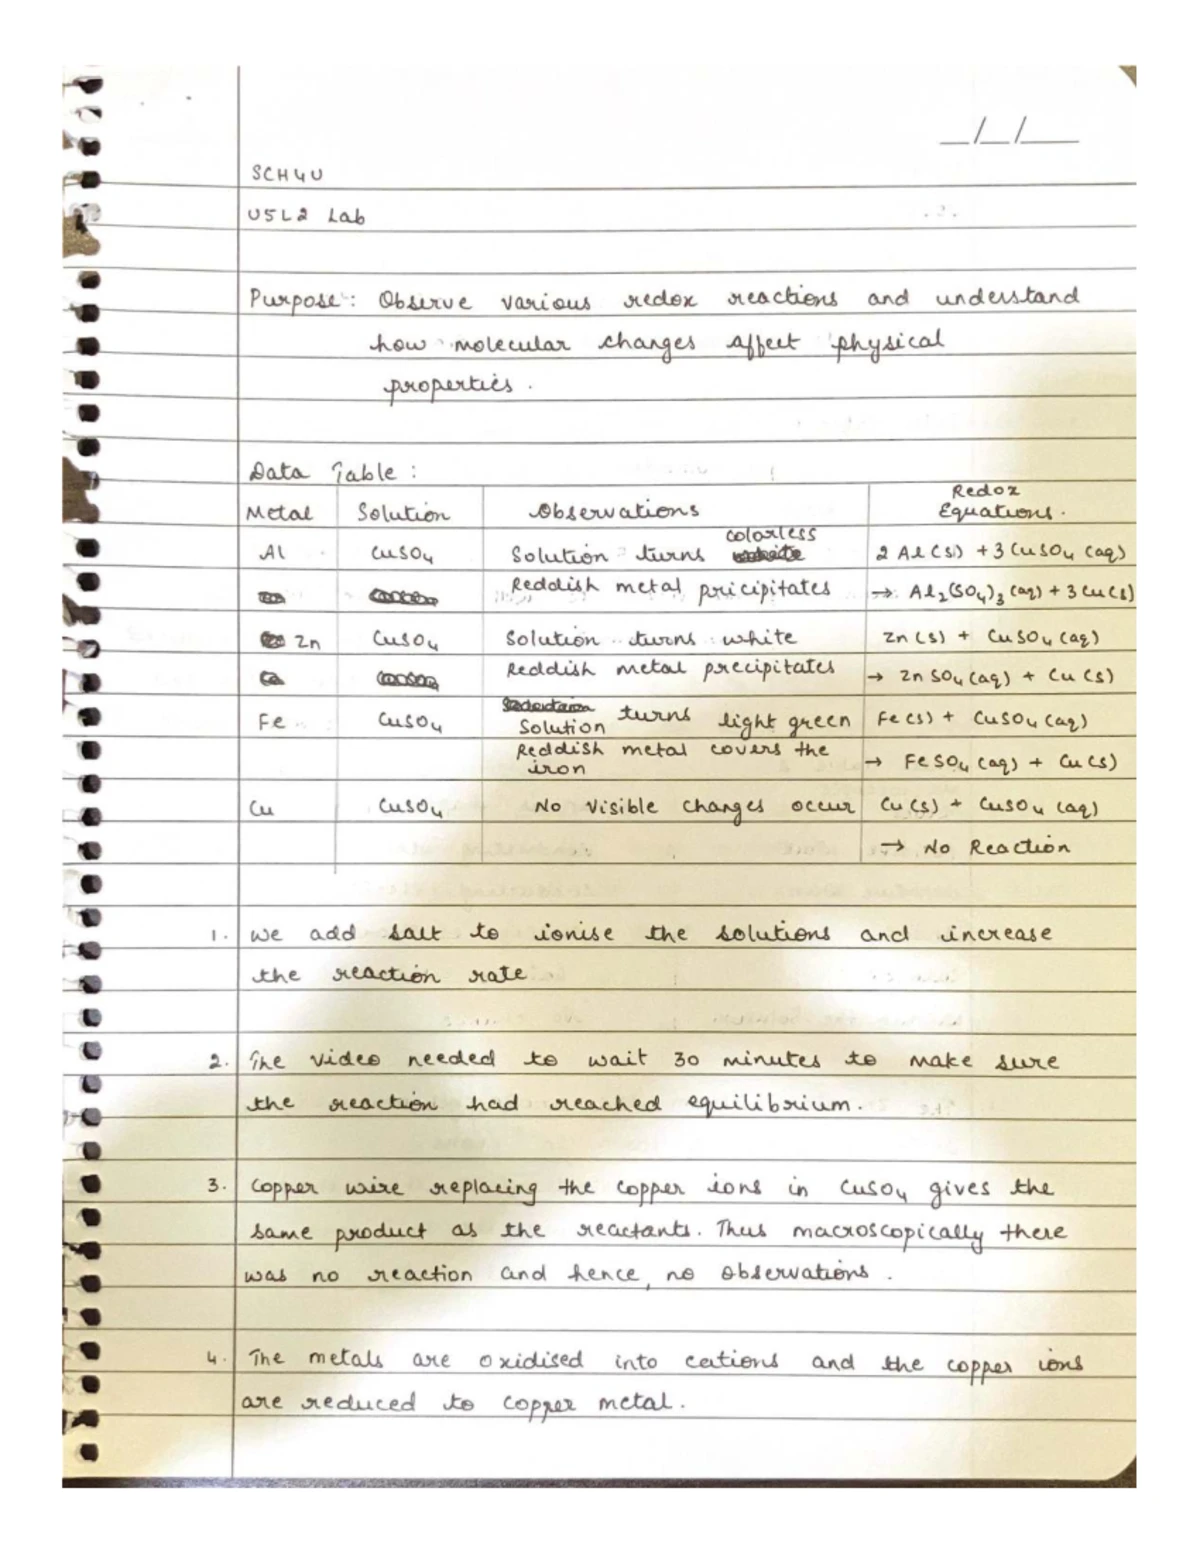 __/__/____
SCH4U
U5L2 Lab
Purpose: Observe various redox reactions and understand
how molecular changes affect physical
properties.
Data Table:
Metal Solution Observations Redox Equations.
Al CuSO4 Solution turns colorless 2 Al (s) + 3 CuSO4 (aq)
Reddish metal pricipitates → Al2(SO4)3 (aq) + 3 Cu (s)
Zn CuSO4 Solution turns white Zn (s) + CuSO4 (aq)
Reddish metal precipitates → ZnSO4 (aq) + Cu (s)
Fe CuSO4 Solution turns light green Fe (s) + CuSO4 (aq)
Reddish metal covers the iron → FeSO4 (aq) + Cu (s)
Cu CuSO4 No visible changes occur Cu (s) + CuSO4 (aq)
→ No Reaction
1. We add salt to ionise the solutions and increase
the reaction rate
2. The video needed to wait 30 minutes to make sure
the reaction had reached equilibrium.
3. Copper wire replacing the copper ions in CuSO4 gives the
same product as the reactants. Thus macroscopically there
was no reaction and hence, no observations.
4. The metals are oxidised into cations and the copper ions
are reduced to copper metal.